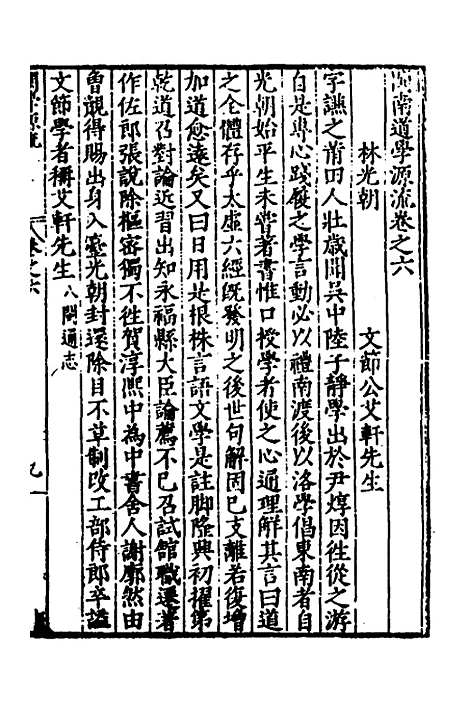 閩南道學源流卷之六
林光朝　文節公艾軒先生
字謙之莆田人壯歲聞吳中陸子靜學出於尹焞因徃從之游
自是專心踐履之學言動必以禮南渡後以洛學倡東南者自
光朝始平生未嘗著書惟口授學者使之心通理解其言曰道
之全體存乎太虛六經旣發明之後世句解固已支離若復增
加道愈遠矣又曰日用是根株言語文學是註脚隆興初擢第
乾道召對論近習出知永福縣大臣論薦不已召試館職遷著
作佐郎張說除樞密獨不徃賀淳熙中為中書舍人謝廓然由
曾覿得賜出身入臺光朝封還除目不草制改工部侍郎卒謚
文節學者稱艾軒先生八閩通志
卷之六
九一